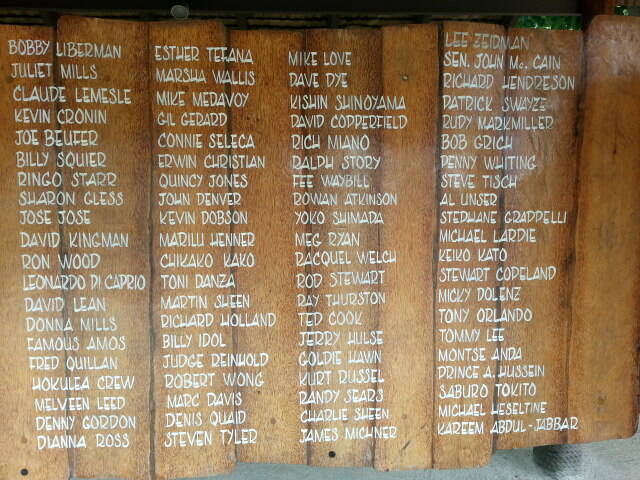 BOBBY LIBERMAN
JULIET MILLS
CLAUDE LEMESLE
KEVIN CRONIN
JOE BEUFER
BILLY SQUIER
RINGO STARR
SHARON GLESS
JOSE JOSE
DAVID KINGMAN
RON WOOD
LEONARDO DI CAPRIO
DAVID LEAN
DONNA MILLS
FAMOUS AMOS
FRED QUILLAN
HOKULEA CREW
MELVEEN LEED
DENNY GORDON
DIANNA ROSS
ESTHER TEHANA
MARSHA WALLIS
MIKE MEDAVOY
GIL GERARD
CONNIE SELECA
ERWIN CHRISTIAN
QUINCY JONES
JOHN DENVER
KEVIN DOBSON
MARILU HENNER
CHIKAKO KAKO
TONI DANZA
MARTIN SHEEN
RICHARD HOLLAND
BILLY IDOL
JUDGE REINHOLD
ROBERT WONG
MARC DAVIS
DENIS QUAID
STEVEN TYLER
MIKE LOVE
DAVE DYE
KISHIN SHINOYAMA
DAVID COPPERFIELD
RICH MIANO
RALPH STORY
FEE WAYBILL
ROWAN ATKINSON
YOKO SHIMADA
MEG RYAN
RACQUEL WELCH
ROD STEWART
RAY THURSTON
TED COOK
JERRY HULSE
GOLDIE HAWN
KURT RUSSEL
RANDY SEARS
CHARLIE SHEEN
JAMES MICHNER
LEE ZEIDMAN
SEN. JOHN Mc. CAIN
RICHARD HENDRESON
PATRICK SWAYZE
RUDY MARKMILLER
BOB GRICH
PENNY WHITING
STEVE TISCH
AL UNSER
STEPHANE GRAPPELLI
MICHAEL LARDIE
KEIKO KATO
STEWART COPELAND
MICKY DOLENZ
TONY ORLANDO
TOMMY LEE
MONTSE ANDA
PRINCE A. HUSSEIN
SABURO TOKITO
MICHAEL HESELTINE
KAREEM ABDUL-JABBAR